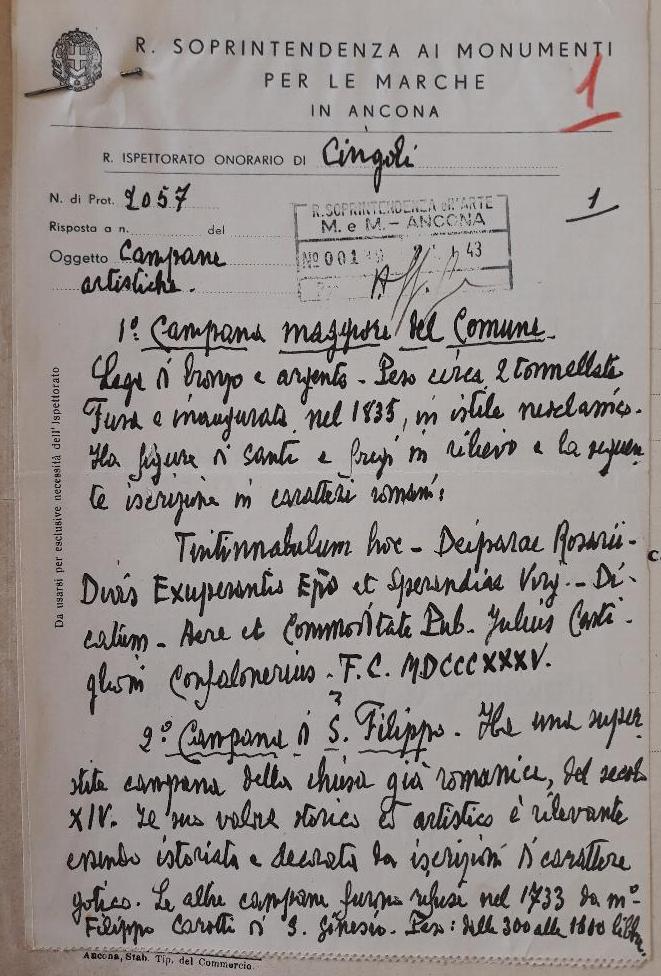 R. SOPRINTENDENZA AI MONUMENTI
PER LE MARCHE
IN ANCONA
1
R. ISPETTORATO ONORARIO DI Cingoli
N. di Prot. 2057
Risposta a n. del
Oggetto Campane
artistiche.
R. SOPRINTENDENZA all'ARTE
M. e M. - ANCONA
Nº 001 43
1
1º. Campana maggiore del Comune.
Lega di bronzo e argento. Peso circa 2 tonnellate
Fusa e inaugurata nel 1835, in istile neoclassico.
Ha figure di santi e fregi in rilievo e la seguen
te iscrizione in caratteri romani:
Tintinnabulum hoc - Deiparae Rosarii -
Divis Exuperantio Epo et Sperandiae Virg. - Di-
catum - Aere et Commoditate Pub. Julius Casti-
glioni Confalonerius. F. C. MDCCCXXXV.
2º. Campana di S. Filippo. Ha una super
stite campana della chiesa già romanica, del secolo
XIV. Il suo valore storico ed artistico è rilevante
essendo istoriata e decorata da iscrizioni di carattere
gotico. Le altre campane furono rifuse nel 1733 da mº
Filippo Carotti di S. Ginesio. Peso: dalle 300 alle libbre.
Da usarsi per esclusive necessità dell'Ispettorato
Ancona, Stab. Tip. del Commercio.